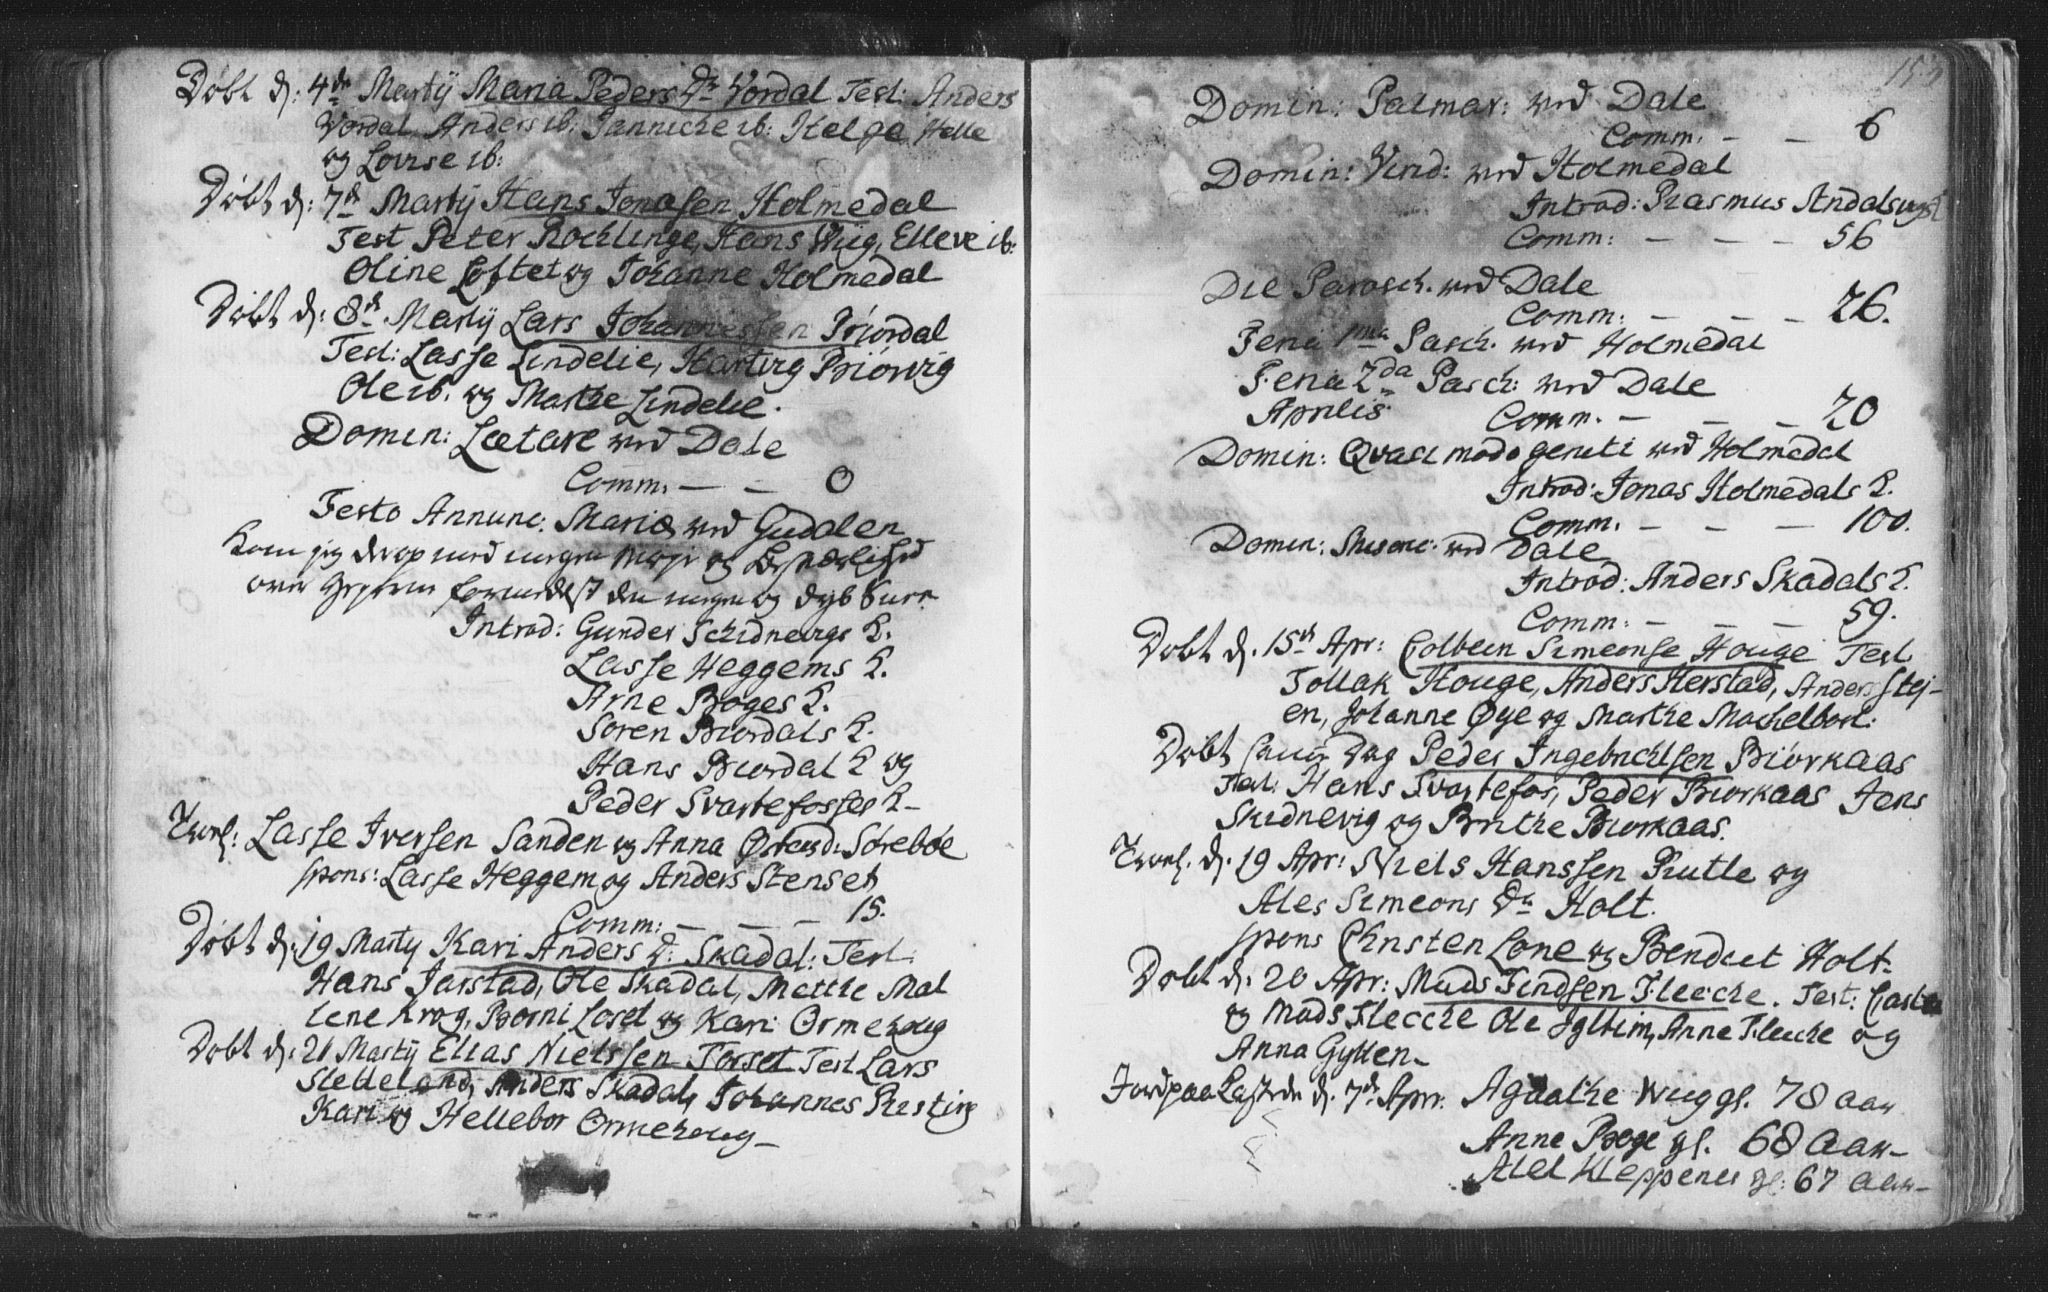 Døbt d: 4de Martij Maria Peders Dr Vordal Test: Anders
Vordal Anders ib: Jannicke ib: Helge Helle
og Lovise ib:
Døbt d: 7de Martij Hans Jonassen Holmedal
Test Peter Rochlinge, Hans Wiig, Elleve ib:
Oline Loftet og Johanne Holmedal
Døbt d: 8de Martij Lars Johannessen Biordal
Test: Lasse Lindelie, Hartvig Biørvig
Ole ib. og Marthe Lindelie.
Domin: Lætare ved Dale
Comm: — — 0
Festo Annunc: Mariæ ved Gudalen
Kom jeg derop med megen Møje og
over formedelst den megen og dyb Snee
Introd: Gunder Schidnevigs K.
Lasse Heggems K.
Arne Bøges K.
Søren Biordals K.
Hans Biordal K og
Peder Svartefosses K-
Trol: Lasse Iversen Sanden og Anna Østensd: Sørebøe
spons: Lasse Heggem og Anders Stenset
Comm: — — — 15.
Døbt d: 19 Marty Kari Anders D: Skadal: Test:
Hans Jarstad, Ole Skadal, Metthe Mal
lene Krog, Børni Loset og Kari Ormehoug
Døbt d: 21 Martij Elias Nielssen Torset Test Lars
Sletteland, Anders Skadal, Johannes Risting
Kari og Hellebor Ormehoug—
Domin: Palmar: ved Dale
Comm: — — 6
Domin: Vind: ved Holmedal
Introd: Rasmus Andalsvigs K
Comm: — — — 56
Die Parasch. ved Dale
Comm: — — — 26.
Feria 1ma Pasch. ved Holmedal
Feria 2da Pasch: ved Dale
Aprilis Comm. — — — 20
Domin: Qvasi modo geniti ved Holmedal
Introd: Jonas Holmedals K.
Comm. — — — 100.
Domin: Miseric: ved Dale
Introd: Anders Skadals K.
Comm: — — — 59.
Døbt d. 15de Apr: Colbein Simeonse Houge Test
Tollak Houge, Anders Herstad, Anders Stej-
en, Johanne Øye og Marthe Machelbost.
Døbt samme Dag Peder Ingebrichtsen Biørkaas
Test: Hans Svartefos, Peder Biorkaas Jens
Skidnevig og Brithe Biorkaas.
Trol. d. 19 Apr: Niels Hanssen Rutle og
Ales Simeons Dr Holt.
spons Christen Lone og Bendict Holt-
Døbt d. 20 Apr: Mads Findsen Flecche. Test: Casten
og Mads Flecche Ole Iglheim, Anne Flecche og
Anna Gytten-
Jordpaa Kastede d. 7de Apr: Agaathe Wiig gl. 78 aar
Anne Bøge gl. 68 Aar-
Alel Kleppenes gl: 67 Aar-